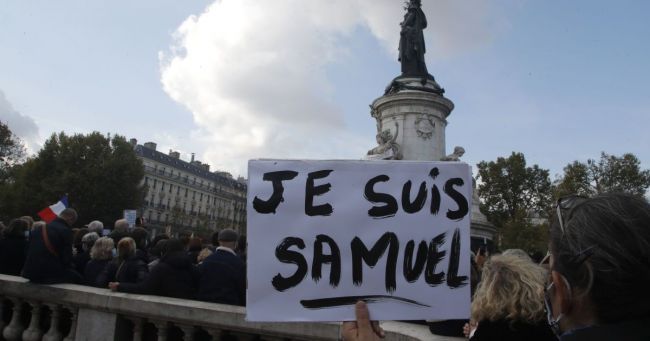 JE SUIS
SAMUEL